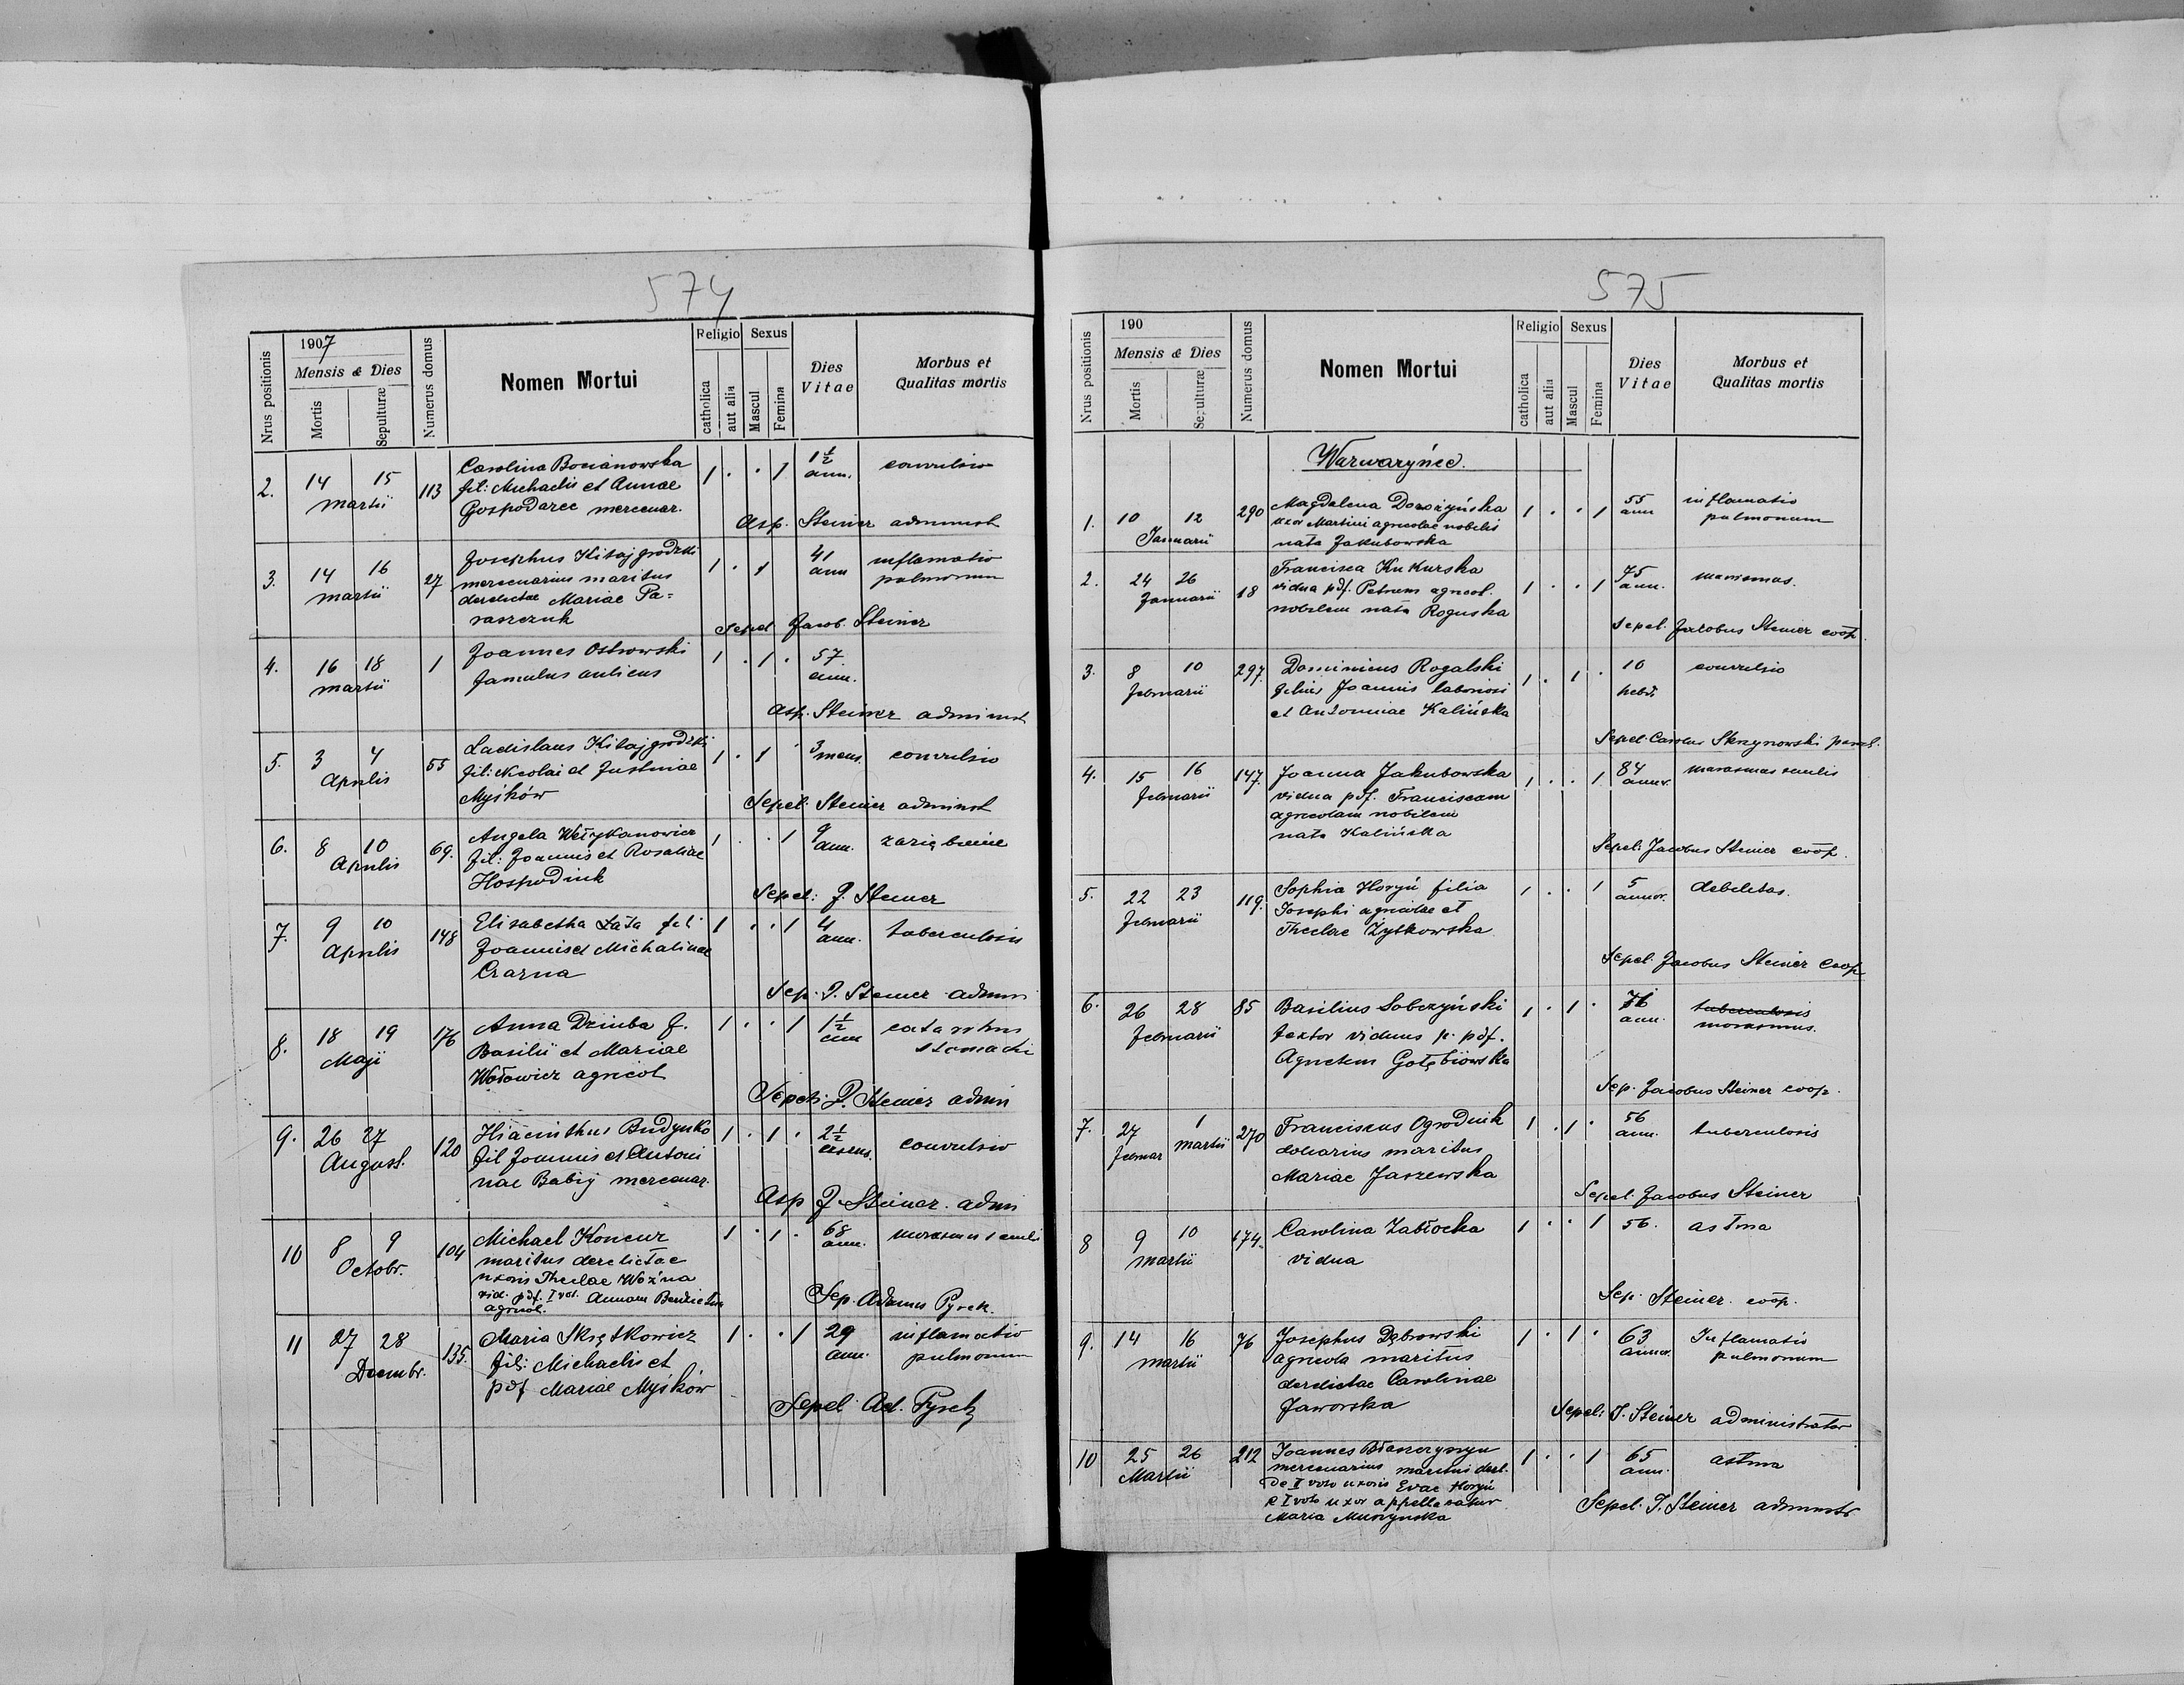 574
1907
Nrus positionis
Mensis & Dies
Mortis
Sepulturæ
Numerus domus
Nomen Mortui
Religio
catholica
aut alia
Sexus
Mascul
Femina
Dies
Vitae
Morbus et
Qualitas mortis
2. 14 15 113 Carolina Bocianowska 1 . . 1 1½ convulsio
Martii fil: Michaelis et Annae ann.
Gospodarec mercenar.
Asp. Steiner administ
3. 14 16 27 Josephus Kitajgrodzki 1 . 1 41 inflamatio
Martii mercenarius maritus ann pulmonum
derelictae Mariae Pa=
raszczuk
Sepel Jacob. Steiner
4. 16 18 1 Joannes Ostrowski 1 . 1 . 57
Martii famulus aulicus ann.
Asp. Steiner administ
5. 3 4 55 Ladislaus Kitajgrodzki 1 . 1 . 3 mens. convulsio
Aprilis fil: Nicolai et Justinae
Myśków
Sepel. Steiner administ
6. 8 10 69. Angela Wełykanowicz 1 . 1 9 zaziębienie
Aprilis fil: Joannis et Rosaliae ann.
Hospodiuk
Sepel: J. Steiner
7. 9 10 148 Elisabetha Łata fil 1 . . 1 4 tuberculosis
Aprilis Joannis et Michalinae ann.
Czarna
Sep. J. Steiner admin
8. 18 19 176 Anna Dziuba f. 1 . . 1 1½ catarrhus
Maji Basilii et Mariae ann stomachi
Wołowicz agricol
Sepel: J. Steiner admin
9. 26 27 120 Hiacinthus Budynko 1 . 1 . 2½ convulsio
August. fil Joannis et Antoni mens.
nae Babij mercenar.
Asp J. Steiner. admin
10 8 9 104 Michael Koncur 1 . 1 . 68 marasmus senili
Octobr. maritus derelictae ann.
uxoris Theclae Woźna
vid. pdf. I vot. Annam
agricol.
Sep. Adamus Pyrek.
11 27 28 135. Maria Skrętkowicz 1 . . 1 29 inflamatio
Decembr. fil: Michaelis et ann. pulmonum
pdf Mariae Myśków
Sepel Ad. Pyrek
575
190
Nrus positionis
Mensis & Dies
Mortis
Sepulturæ
Numerus domus
Nomen Mortui
Religio
catholica
aut alia
Sexus
Mascul
Femina
Dies
Vitae
Morbus et
Qualitas mortis
Warwaryńce.
1. 10 12 290 Magdalena Dorożyńska 1 . . 1 55 inflamatio
Januarii uxor Martini agricolae nobilis ann pulmonum
nata Jakubowska
2. 24 26 18 Francisca Kukurska 1 . . 1 75 marasmus.
Januarii vidua pdf. Petrum agricol. ann.
nobilem nata Roguska
Sepel. Jacobus Steiner coop.
3. 8 10 297. Dominicus Rogalski 1 . 1 . 10 convulsio
Februarii filius Joannis laboriosi hebd.
et Antoniae Kalińska
Sepel Carolus Skrzynowski paroch.
4. 15 16 147. Joanna Jakubowska 1 . . 1 84 marasmus senilis
Februarii vidua pdf. Franciscam annor.
agricolam nobilem
nata Kalińska
Sepel: Jacobus Steiner coop.
5. 22 23 119. Sophia Horyń filia 1 . . 1 5 debelitas.
Februarii Josephi agricolae et annor.
Theclae Żytkowska
Sepel. Jacobus Steiner Coop
6. 26 28 85 Basilius Sobczyński 1 . 1 . 76 tuberculosis
Februarii textor viduus p. pdf. ann. morasmus.
Agnetem Gołębiowska
Sep. Jacobus Steiner coop.
7. 27 1 270 Franciscus Ogrodnik 1 . 1 . 56 tuberculosis
Februar Martii doliarius maritus ann.
Mariae Jaszewska
Sepel. Jacobus Steiner
8 9 10 174. Carolina Zabłocka 1 . . 1 56. astma
Martii vidua
Sep. Steiner. coop.
9. 14 16 76 Josephus Dąbrowski 1 . 1 . 63 Inflamatio
Martii agricola maritus annor. pulmonum
derelictae Carolinae
Jaworska
Sepel: J. Steiner administrator
10 25 26 212 Joannes Błaszczyszyn 1 . . 1 65 astma
Martii mercenarius maritus derel. ann.
de II voto uxoris Evae Horyń
e I voto uxor appellabatur
Maria Muszynska
Sepel. J. Steiner administr.